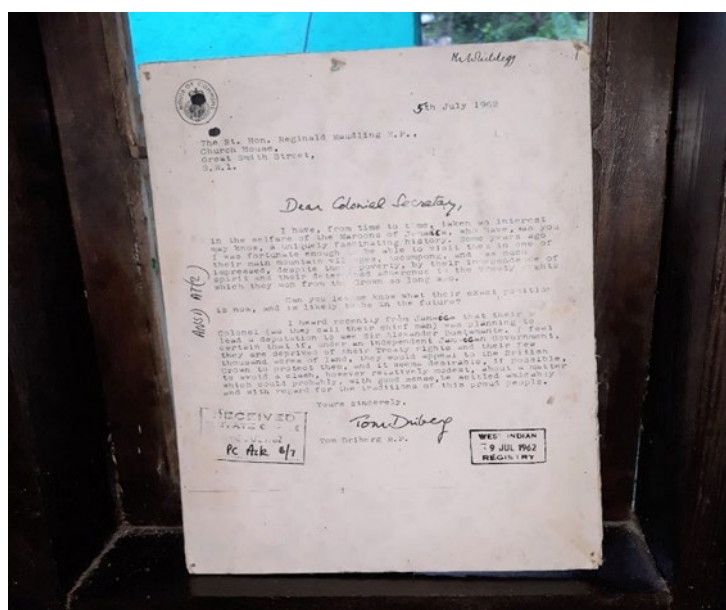 HOUSE OF COMMONS
5th July 1962
The Rt. Hon. Reginald Maudling M.P.,
Church House,
Great Smith Street,
S.W.1.
Dear Colonial Secretary,
I have, from time to time, taken an interest
in the welfare of the Maroons of Jamaica, who have, as you
may know, a uniquely fascinating history. Some years ago
I was fortunate enough to be able to visit them in one of
their main mountain villages, Accompong, and was much
impressed, despite their poverty, by their independence of
spirit and their determined adherence to the Treaty rights
which they won from the Crown so long ago.
Can you let me know what their exact position
is now, and is likely to be in the future?
I heard recently from Jamaica that their
Colonel (as they call their chief man) was planning to
lead a deputation to see Sir Alexander Bustamante. I feel
certain that if, under an independent Jamaican Government,
they are deprived of their Treaty rights and their few
thousand acres of land, they would appeal to the British
Crown to protect them, and it seems desirable, if possible,
to avoid a clash, however relatively modest, about a matter
which could probably, with good sense, be settled amicably
and with regard for the traditions of this proud people.
Yours sincerely,
Tom Driberg
Tom Driberg M.P.
RECEIVED
PRIVATE OFFICE
6/7
WEST INDIAN
-9 JUL 1962
REGISTRY